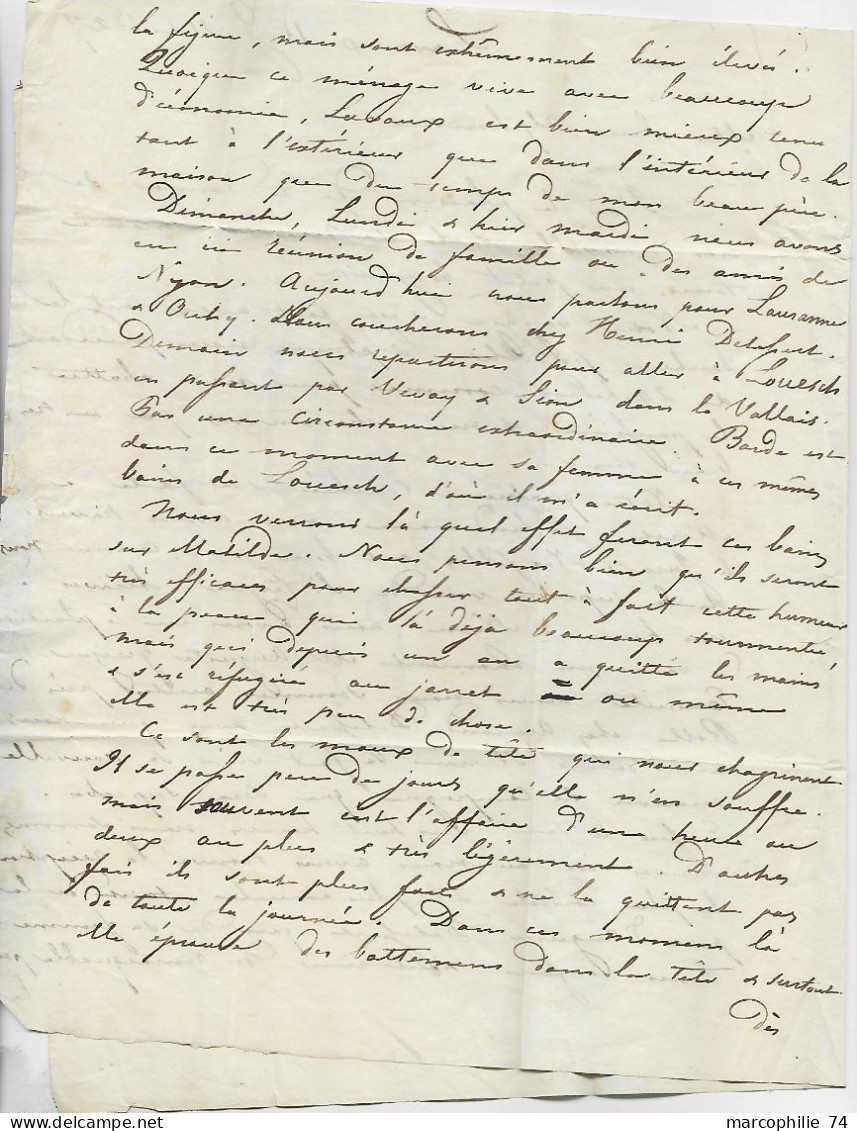 la figure, mais sont extrêmement bien élevés.
Quoique ce ménage vive avec beaucoup
d'économie, Lavaux est bien mieux tenu
tant à l'extérieur que dans l'intérieur de la
maison que du temps de mon beau père.
Dimanche, Lundi & hier mardi nous avons
eu ici réunion de famille ou des amis de
Nyon. Aujourd'hui nous partons pour Lausanne
& Ouchy. Nous coucherons chez Henri
Demain nous repartirons pour aller à Louesch
en passant par Vevay & Sion dans le Vallais.
Par une circonstance extraordinaire. Barde est
dans ce moment avec sa femme à ces mêmes
bains de Louesch, d'où il m'a écrit.
Nous verrons là quel effet feront ces bains
sur Matilde. Nous pensons bien qu'ils seront
très efficaces pour chasser tout à fait cette humeur
à la peau qui l'a déja beaucoup tourmentée
mais qui depuis un an a quitté les mains
& s'est réfugiée au jarret ou même
elle est très peu de chose.
Ce sont les maux de tête qui nous chagrinent
Il se passe peu de jours qu'elle n'en souffre.
mais souvent c'est l'affaire d'une heure ou
deux au plus & très légèrement. D'autres
fois ils sont plus fort & ne la quittent pas
de toute la journée. Dans ces momens là
elle éprouve des battemens dans la tête & surtout
dès
marcophilie 74